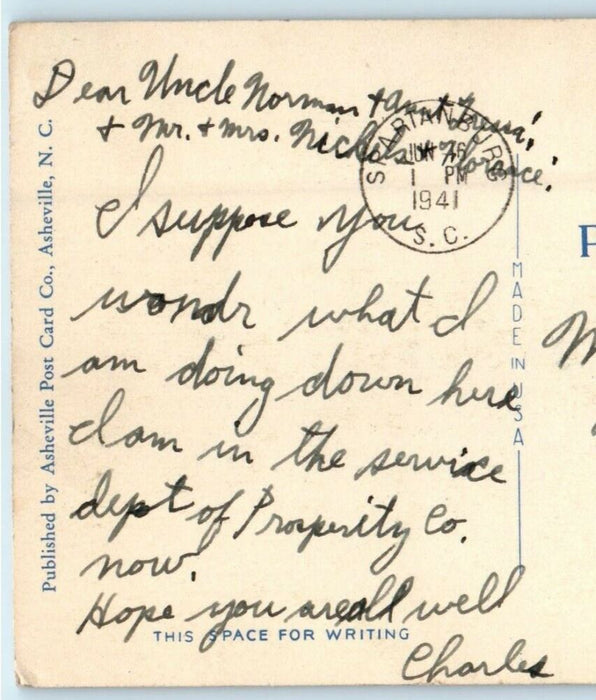 Dear Uncle Norman + Aunt
+ Mr. + Mrs. Nichols + Florance!
I suppose you
wondr what I
am doing down here
I am in the service
dept of Prosperity Co.
now.
Hope you are all well
Charles
SPARTANBURG
JUN 16
1 PM
1941
S. C.
Published by Asheville Post Card Co., Asheville, N. C.
MADE IN USA
THIS SPACE FOR WRITING